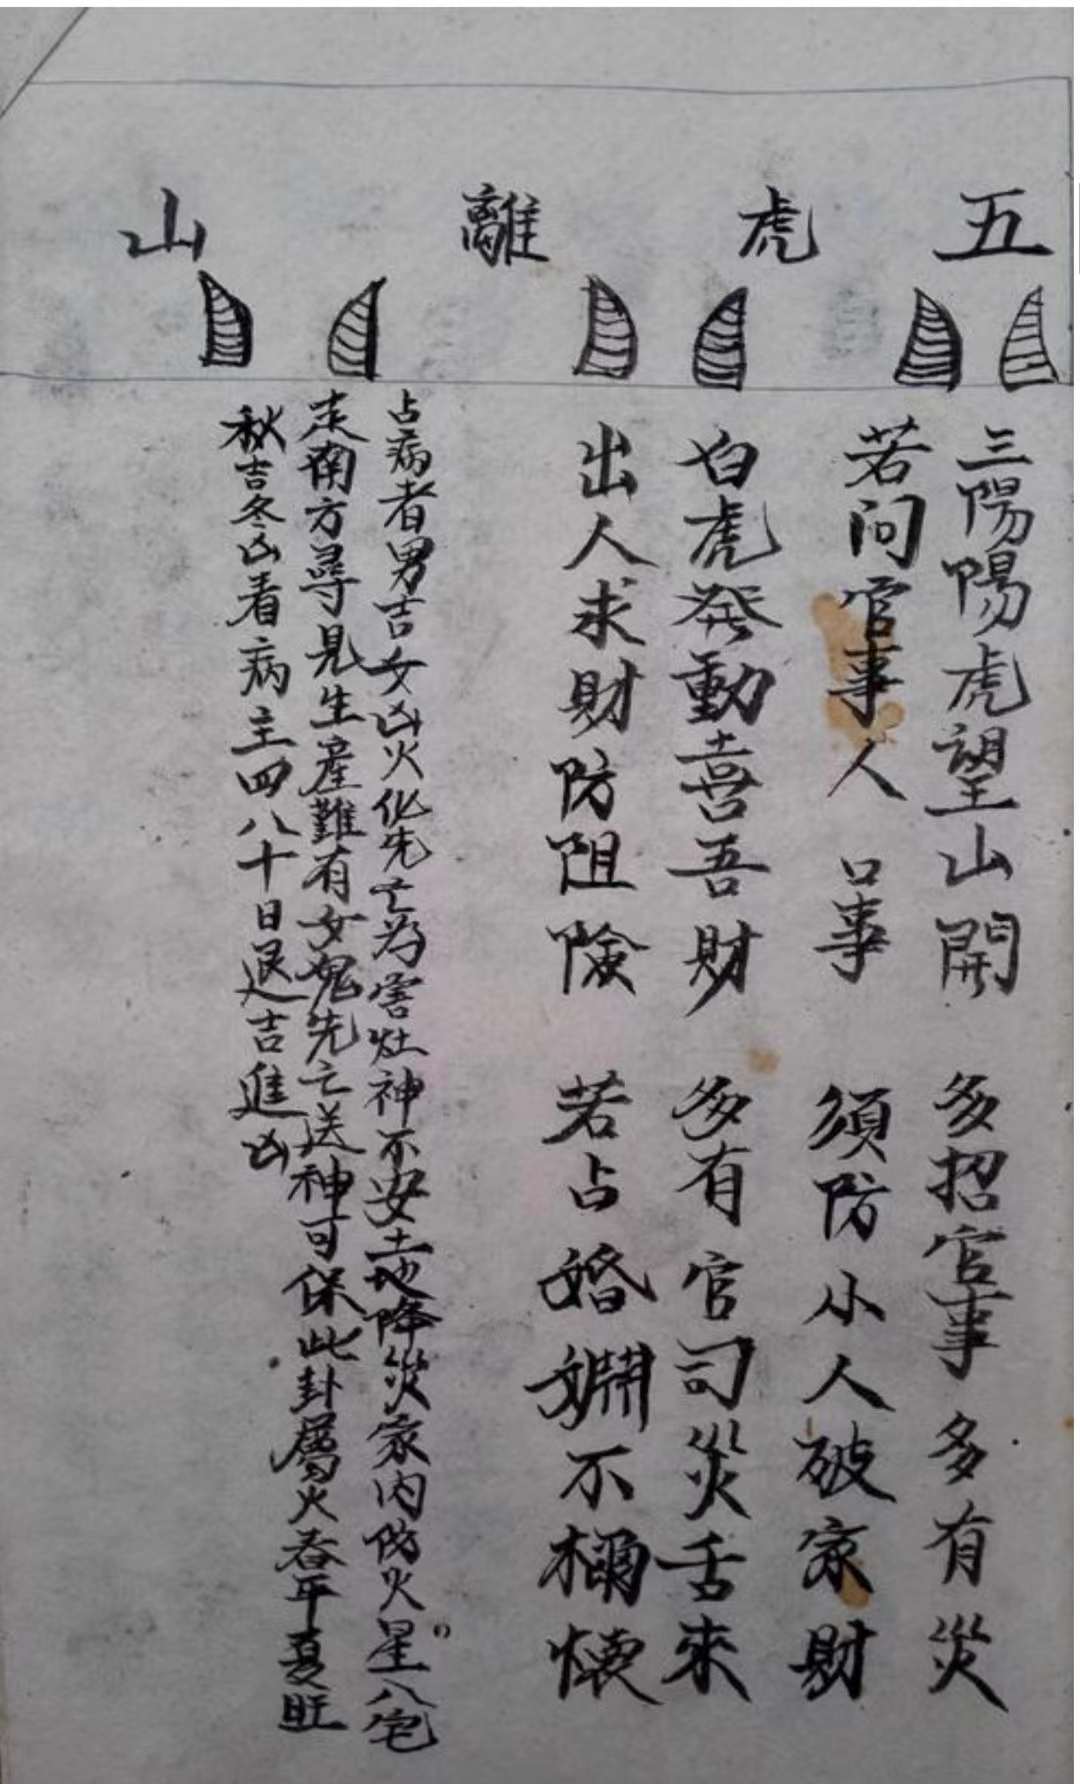 五虎離山
三陽陽虎望山開 多招官事多有災
若问官事人口事 須防小人破家財
白虎發動喜吾財 多有官司災舌來
出人求財防阻險 若占婚姻不稱懷
占病者男吉女凶火化先亡为害灶神不安土地降災家内防火星入宅
走南方尋見生産難有女鬼先亡送神可保此卦屬火春平夏旺
秋吉冬凶看病主四八十日退吉進凶